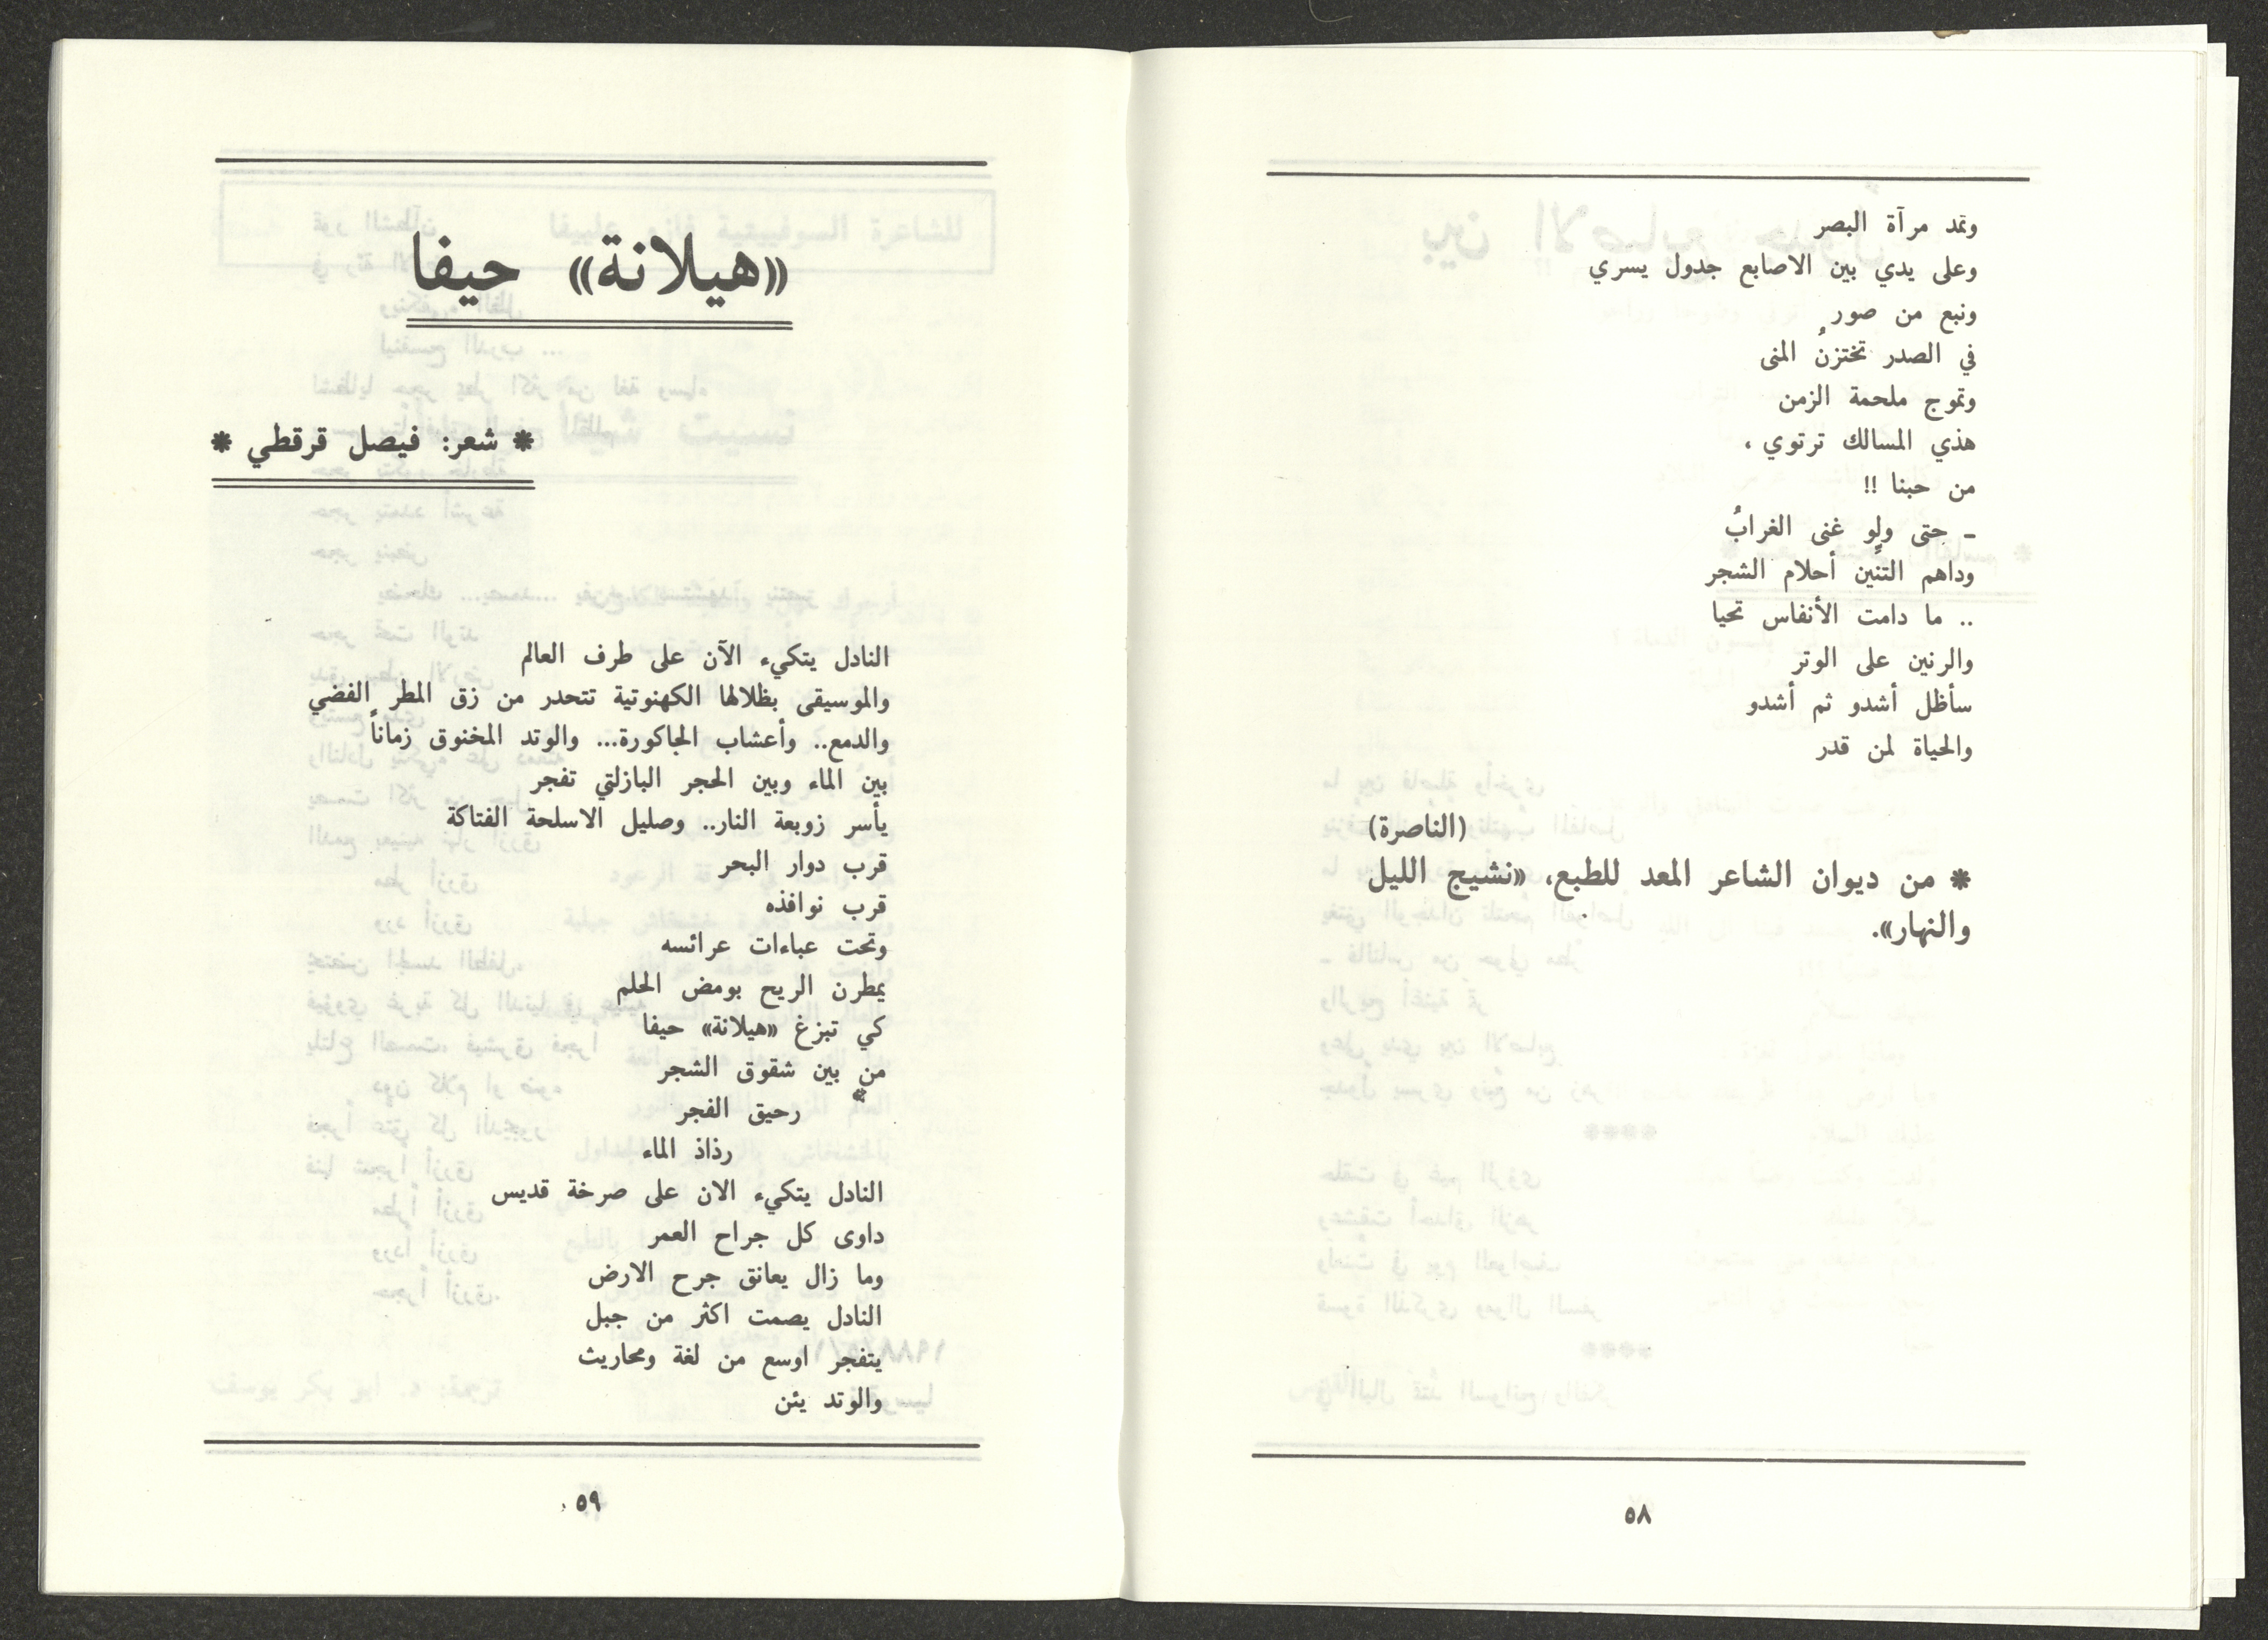 وتمد مرآة البصر
وعلى يدي بين الاصابع جدول يسري
ونبع من صور
في الصدر تختزنُ المنى
وتموج ملحمة الزمن
هذي المسالك ترتوي ،
من حبنا !!
ـ حتى ولو غنى الغرابُ
وداهم التنّين أحلام الشجر
.. ما دامت الأنفاس تحيا
والرنين على الوتر
سأظل أشدو ثم أشدو
والحياة لمن قدر
(الناصرة)
* من ديوان الشاعر المعد للطبع، «نشيج الليل
والنهار».
٥٨
«هيلانة» حيفا
* شعر: فيصل قرقطي *
النادل يتكيء الآن على طرف العالم
والموسيقى بظلالها الكهنوتية تتحدر من زق المطر الفضي
والدمع.. وأعشاب الجاكورة... والوتد المخنوق زماناً
بين الماء وبين الحجر البازلتي تفجر
يأسر زوبعة النار.. وصليل الاسلحة الفتاكة
قرب دوار البحر
قرب نوافذه
وتحت عباءات عرائسه
يمطرن الريح بومض الحلم
كي تبزغ «هيلانة» حيفا
من بين شقوق الشجر
رحيق الفجر
رذاذ الماء
النادل يتكيء الان على صرخة قديس
داوى كل جراح العمر
وما زال يعانق جرح الارض
النادل يصمت اكثر من جبل
يتفجر اوسع من لغة ومحاريث
والوتد يئن
٥٩